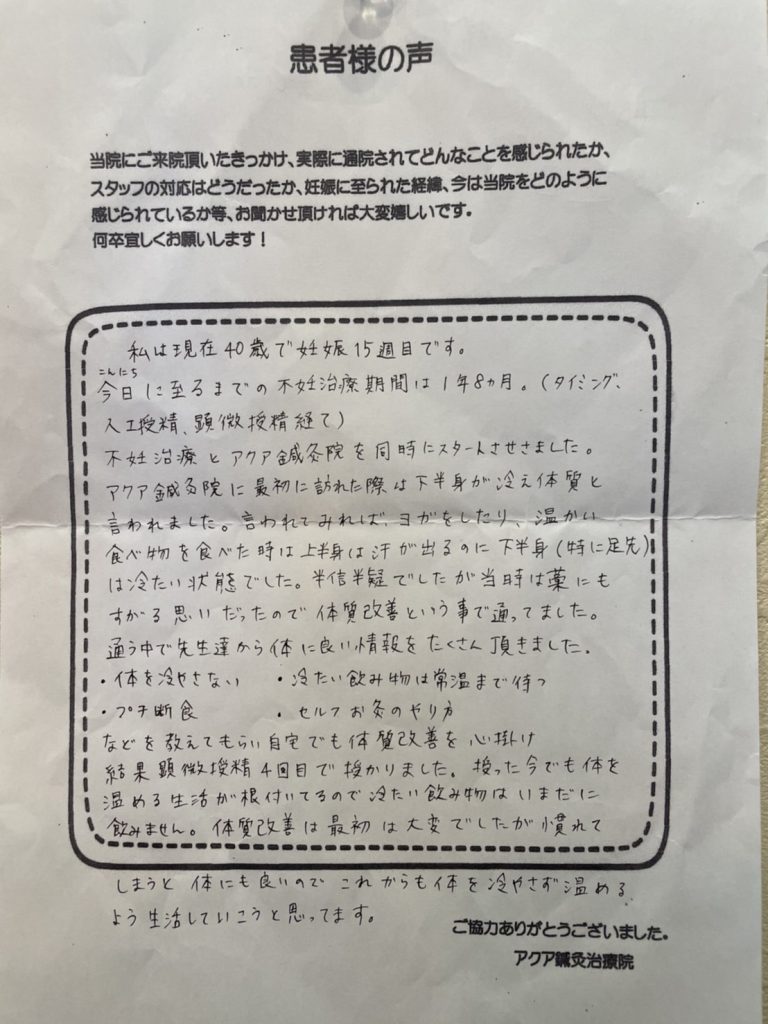 患者様の声
当院にご来院頂いたきっかけ、実際に通院されてどんなことを感じられたか、
スタッフの対応はどうだったか、妊娠に至られた経緯、今は当院をどのように
感じられているか等、お聞かせ頂ければ大変嬉しいです。
何卒宜しくお願いします！
私は現在40歳で妊娠15週目です。
こんにち
今日に至るまでの不妊治療期間は1年8ヵ月。(タイミング、
人工授精、顕微授精経て)
不妊治療とアクア鍼灸院を同時にスタートさせさました。
アクア鍼灸院に最初に訪れた際は下半身が冷え体質と
言われました。言われてみれば、ヨガをしたり、温かい
食べ物を食べた時は上半身は汗が出るのに下半身(特に足先)
は冷たい状態でした。半信半疑でしたが当時は藁にも
すがる思いだったので体質改善という事で通ってました。
通う中で先生達から体に良い情報をたくさん頂きました。
・体を冷やさない ・冷たい飲み物は常温まで待つ
・プチ断食 ・セルフお灸のやり方
などを教えてもらい自宅でも体質改善を心掛け
結果顕微授精4回目で授かりました。授った今でも体を
温める生活が根付いてるので冷たい飲み物はいまだに
飲みません。体質改善は最初は大変でしたが慣れて
しまうと体にも良いのでこれからも体を冷やさず温める
よう生活していこうと思ってます。
ご協力ありがとうございました。
アクア鍼灸治療院